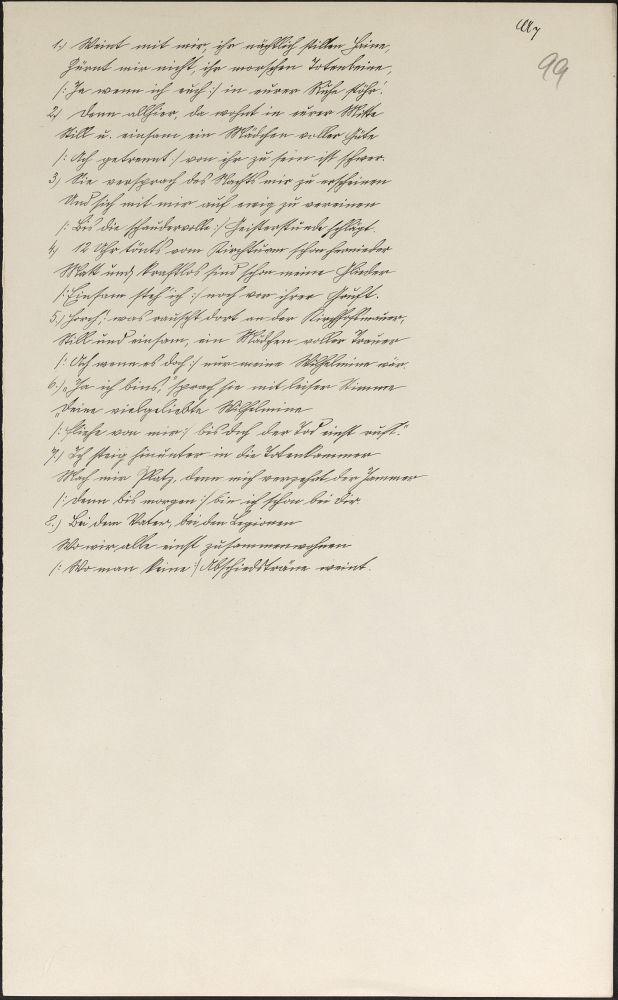 99
1.) Weint mit mir, ihr nächtlich stillen Haine,
Zürnt mir nicht, ihr morschen Totenbeine,
/: Ja wenn ich euch :/ in eurer Ruhe stöhr'.
2.) Denn allhier, da wohnt in eurer Mitte
Still u. einsam ein Mädchen voller Güte
/: Ach getrennt :/ von ihr zu sein ist schwer.
3.) Sie versprach des Nachts mir zu erscheinen
Und sich mit mir auf ewig zu vereinen
/: Bis die schaudervolle :/ Geisterstunde schlägt.
4.) 12 Uhr tönts vom Kirchturm schon hernieder
Matt und kraftlos sind schon meine Glieder
/: Einsam steh' ich :/ noch vor ihrer Gruft.
5.) Horch, was rauscht dort an der Kirchhofmauer,
Still und einsam, ein Mädchen voller Trauer
/: Ach wenn es doch :/ nur meine Wilhelmine wär.
6.) "Ja ich bins," sprach sie mit leiser Stimme
"Deine vielgeliebte Wilhelmine
/: Fliehe von mir :/ bis dich der Tod einst ruft."
7.) Ich steig hinunter in die Totenkammer
Mach mir Platz, denn mich verzehrt der Jammer
/: Denn bis morgen :/ bin ich schon bei dir.
8.) Bei dem Vater, bei den Legionen
Wo wir alle einst zusammenwohnen
/: Wo man keine :/ Abschiedsträne weint.